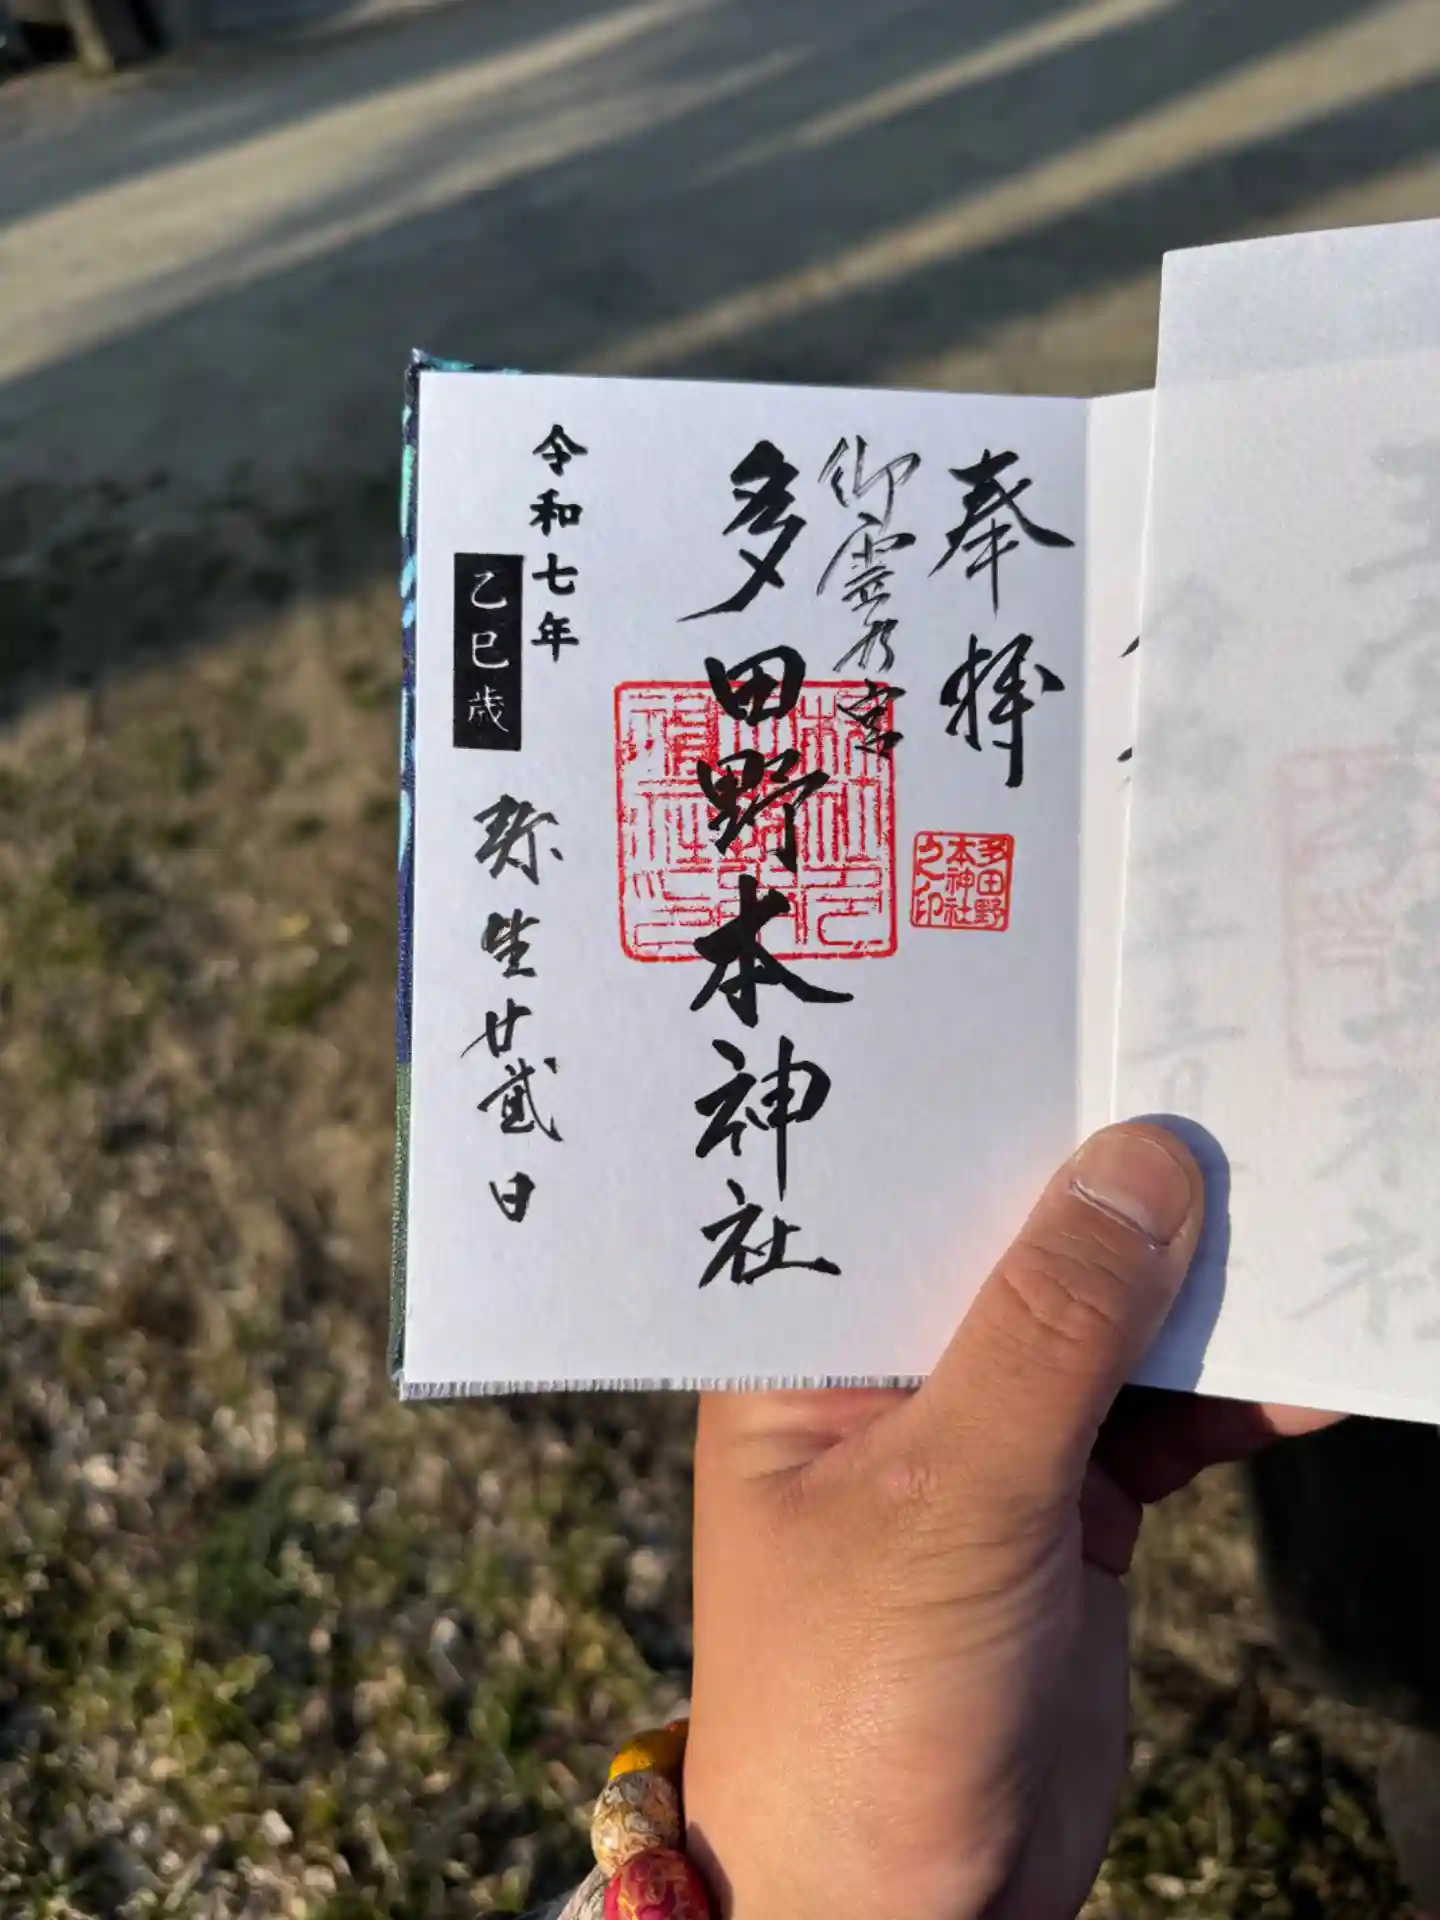 奉拝
御霊乃宮
多田野本神社
多田野
本神社
之印
令和七年
乙巳歳
弥生廿貳日